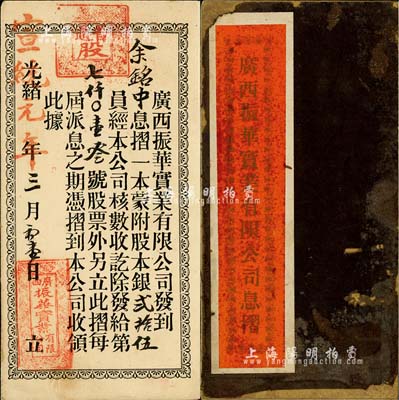 廣西振華實業有限公司發到
余銘中息摺一本蒙附股本銀貳拾伍
員經本公司核數收訖除發給第
七仟〇壹叁號股票外另立此摺每
屆派息之期憑摺到本公司收領
此據
宣統元年
光緒 年三月初壹日 立
股
廣西振華實業有限
廣西振華實業有限公司息摺
上海陽明拍賣
上海陽明拍賣